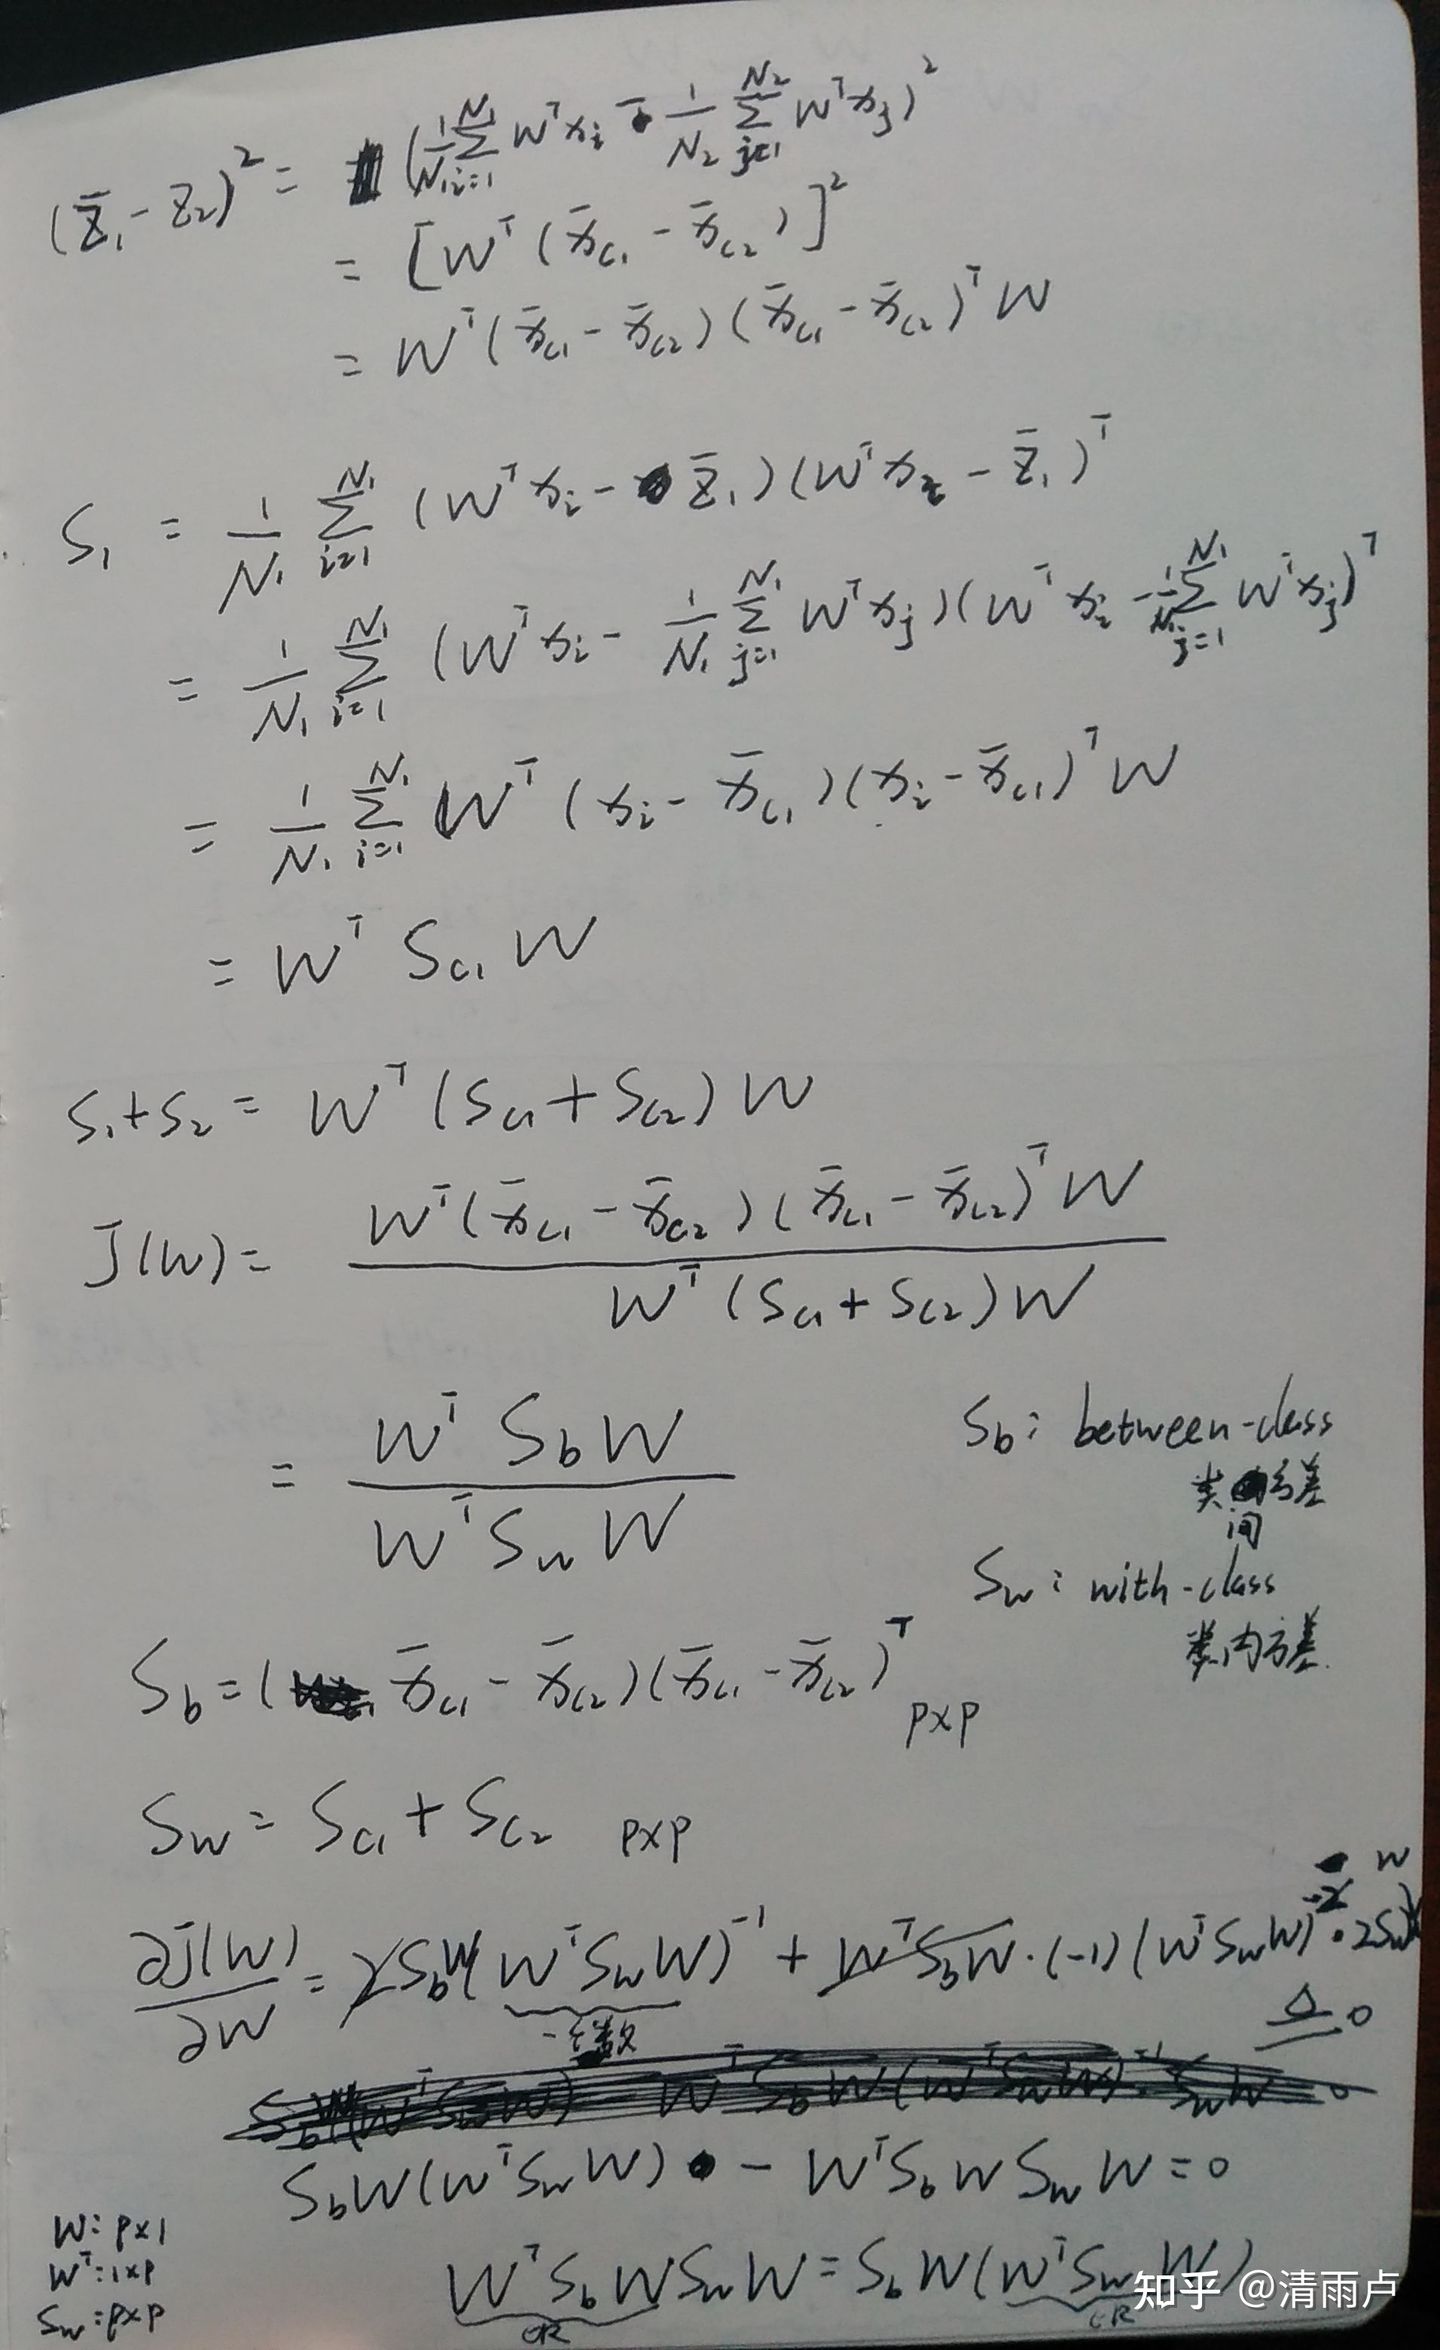 (z̄₁ - z₂)² = (1/N₁ ∑_{i=1}^{N₁} Wᵀxᵢ - 1/N₂ ∑_{j=1}^{N₂} Wᵀxⱼ)²
= [Wᵀ(x̄_{C1} - x̄_{C2})]²
= Wᵀ(x̄_{C1} - x̄_{C2})(x̄_{C1} - x̄_{C2})ᵀW
S₁ = 1/N₁ ∑_{i=1}^{N₁} (Wᵀxᵢ - z̄₁)(Wᵀxᵢ - z̄₁)ᵀ
= 1/N₁ ∑_{i=1}^{N₁} (Wᵀxᵢ - 1/N₁ ∑_{j=1}^{N₁} Wᵀxⱼ)(Wᵀxᵢ - 1/N₁ ∑_{j=1}^{N₁} Wᵀxⱼ)ᵀ
= 1/N₁ ∑_{i=1}^{N₁} Wᵀ(xᵢ - x̄_{C1})(xᵢ - x̄_{C1})ᵀW
= Wᵀ S_{C1} W
S₁+S₂ = Wᵀ(S_{C1} + S_{C2})W
J(W) = Wᵀ(x̄_{C1} - x̄_{C2})(x̄_{C1} - x̄_{C2})ᵀW / Wᵀ(S_{C1} + S_{C2})W
= WᵀS_bW / WᵀS_wW
S_b: between-class
类间方差
S_w: with-class
类内方差
S_b = (x̄_{C1} - x̄_{C2})(x̄_{C1} - x̄_{C2})ᵀ p×p
S_w = S_{C1} + S_{C2} p×p
∂J(W)/∂W = 2S_bW(WᵀS_wW)⁻¹ + WᵀS_bW·(-1)(WᵀS_wW)⁻²·2S_wW ≜ 0
S_bW(WᵀS_wW) - WᵀS_bWS_wW = 0
W: p×1
Wᵀ: 1×p
S_w: p×p
WᵀS_bWS_wW = S_bW(WᵀS_wW)
∈R ∈R
知乎 @清雨卢